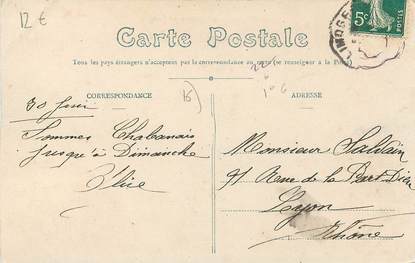 12 €
Carte Postale
Tous les pays étrangers n'acceptent pas la correspondance au recto (se renseigner à la Poste)
CORRESPONDANCE
ADRESSE
5c
POSTES
LIMOGES
15
30 Juin
Sommes Chabanais
jusqu'à Dimanche
Elise
Monsieur
91 Rue de la Part-Dieu
Lyon
Rhône